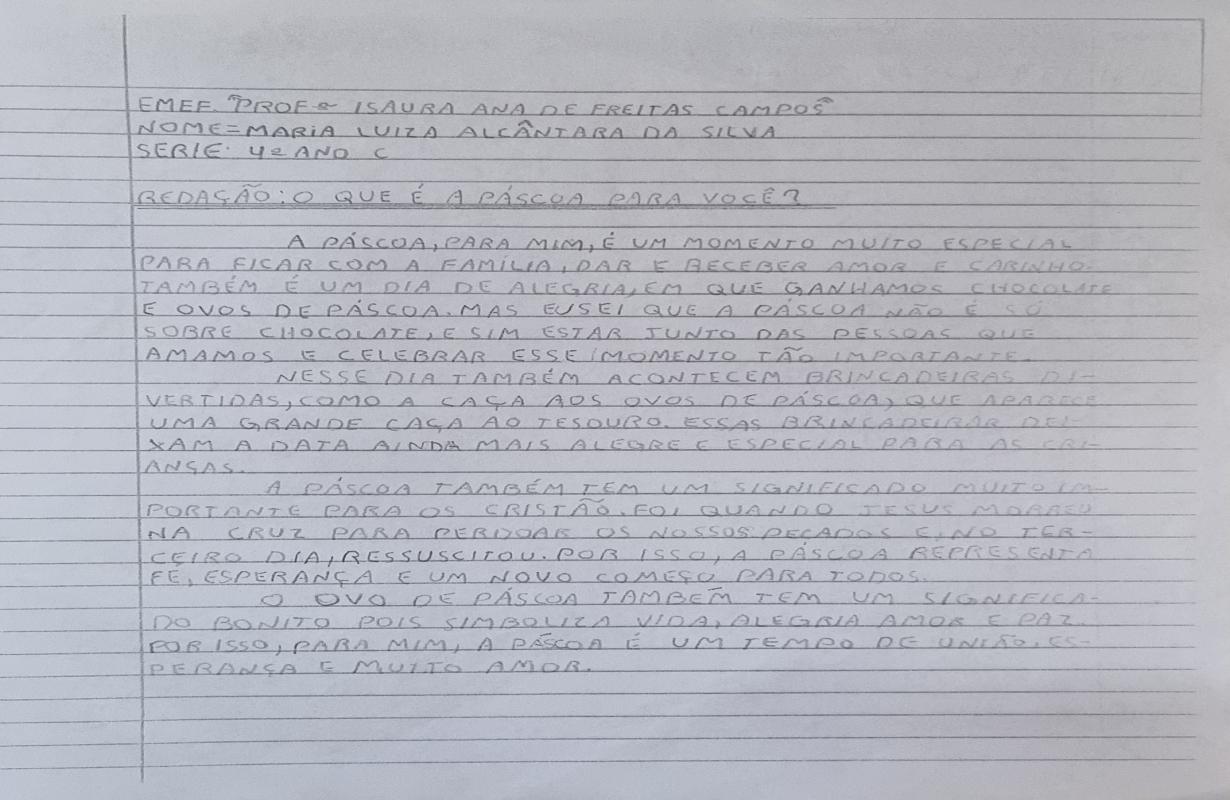 EMEF. "PROFª ISAURA ANA DE FREITAS CAMPOS"
NOME=MARIA LUIZA ALCÂNTARA DA SILVA
SERIE: 4º ANO C
REDAÇÃO: O QUE É A PÁSCOA PARA VOCÊ?
A PÁSCOA, PARA MIM, É UM MOMENTO MUITO ESPECIAL
PARA FICAR COM A FAMÍLIA, DAR E RECEBER AMOR E CARINHO.
TAMBÉM É UM DIA DE ALEGRIA, EM QUE GANHAMOS CHOCOLATE
E OVOS DE PÁSCOA. MAS EU SEI QUE A PÁSCOA NÃO É SÓ
SOBRE CHOCOLATE, E SIM ESTAR JUNTO DAS PESSOAS QUE
AMAMOS E CELEBRAR ESSE MOMENTO TÃO IMPORTANTE.
NESSE DIA TAMBÉM ACONTECEM BRINCADEIRAS DI-
VERTIDAS, COMO A CAÇA AOS OVOS DE PÁSCOA, QUE APARECE
UMA GRANDE CAÇA AO TESOURO. ESSAS BRINCADEIRAR DEI-
XAM A DATA AINDA MAIS ALEGRE E ESPECIAL PARA AS CRI-
ANÇAS.
A PÁSCOA TAMBÉM TEM UM SIGNIFICADO MUITO IM-
PORTANTE PARA OS CRISTÃO. FOI QUANDO JESUS MORREU
NA CRUZ PARA PERDOAR OS NOSSOS PECADOS E, NO TER-
CEIRO DIA, RESSUSCITOU. POR ISSO, A PÁSCOA REPRESENTA
FÉ, ESPERANÇA E UM NOVO COMEÇO PARA TODOS.
O OVO DE PÁSCOA TAMBÉM TEM UM SIGNIFICA-
DO BONITO POIS SIMBOLIZA VIDA, ALEGRIA AMOR E PAZ.
POR ISSO, PARA MIM, A PÁSCOA É UM TEMPO DE UNIÃO, ES-
PERANÇA E MUITO AMOR.